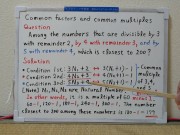 Common factors and common multiples
Question
Among the numbers that are divisible by 3
with remainder 2, by 4 with remainder 3, and by
5 with remainder 4, which is closest to 200?
Solution
Condition 1st 3N₁+2 ↔ 3(N₁+1)-1
Condition 2nd 4N₂+3 ↔ 4(N₂+1)-1
Condition 3rd 5N₃+4 ↔ 5(N₃+1)-1
Common
multiple
3, 4
(Note) N₁, N₂, N₃ are Natural Number
In other words, it is a multiple of 60 minus 1.
60-1, 120-1, 180-1, 240-1, 300-1. The number
closest to 200 among these numbers is 180-1=179